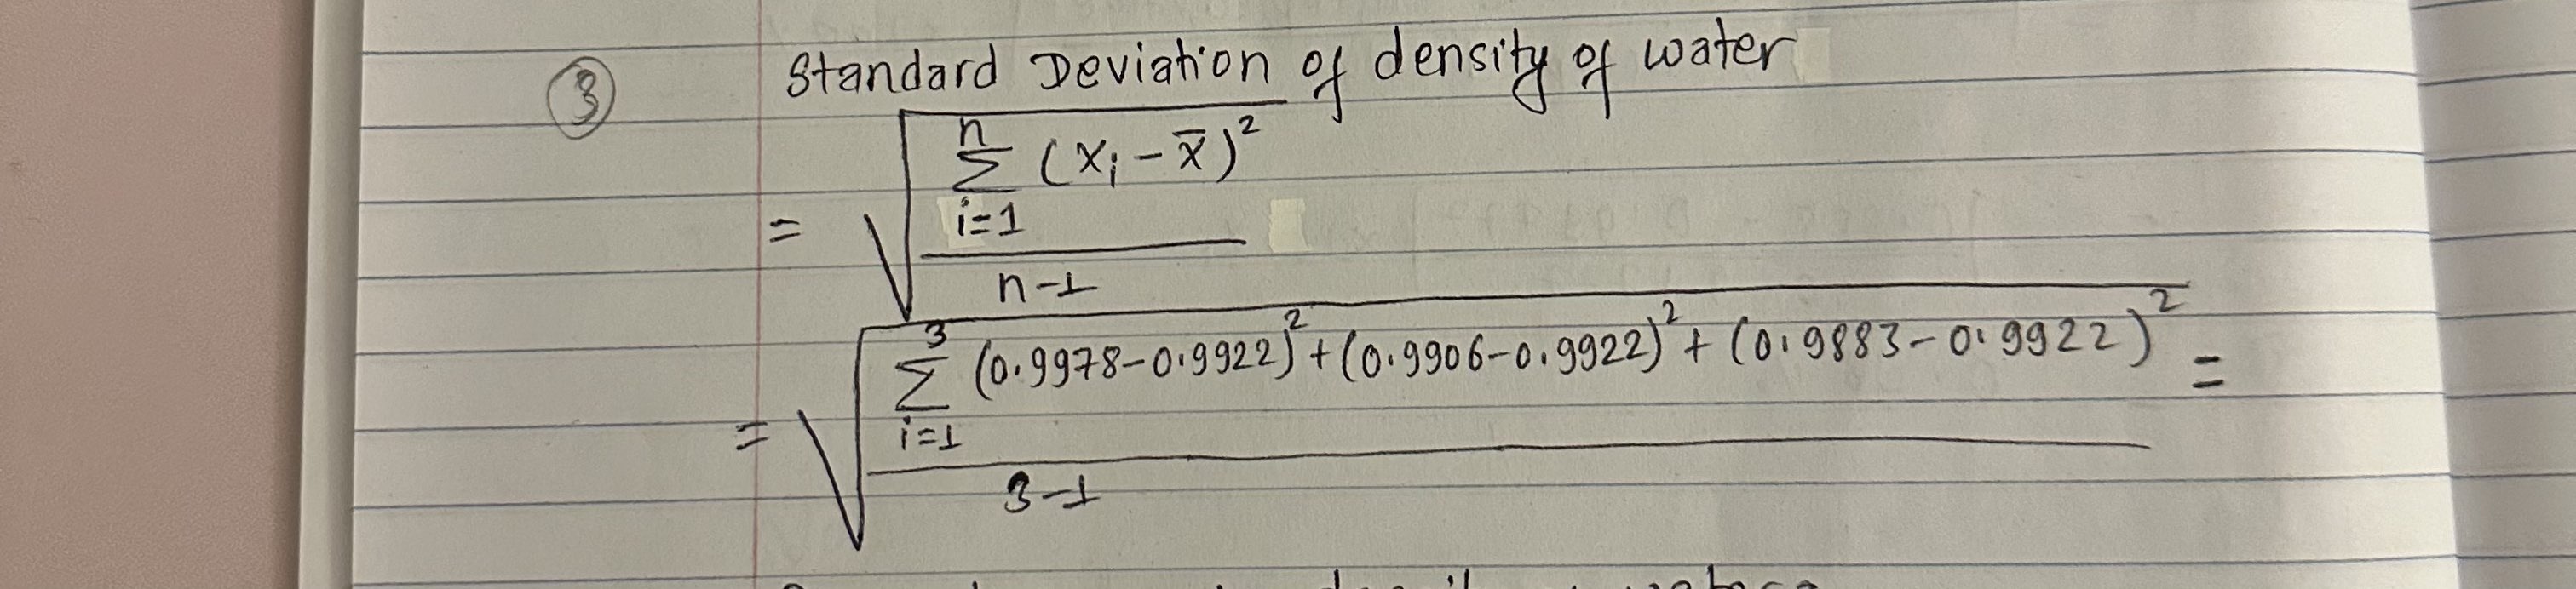 ③ Standard Deviation of density of water
= √( n Σ i=1 (xi - x̄)² / n-1 )
= √( 3 Σ i=1 (0.9978-0.9922)² + (0.9906-0.9922)² + (0.9883-0.9922)² / 3-1 ) =